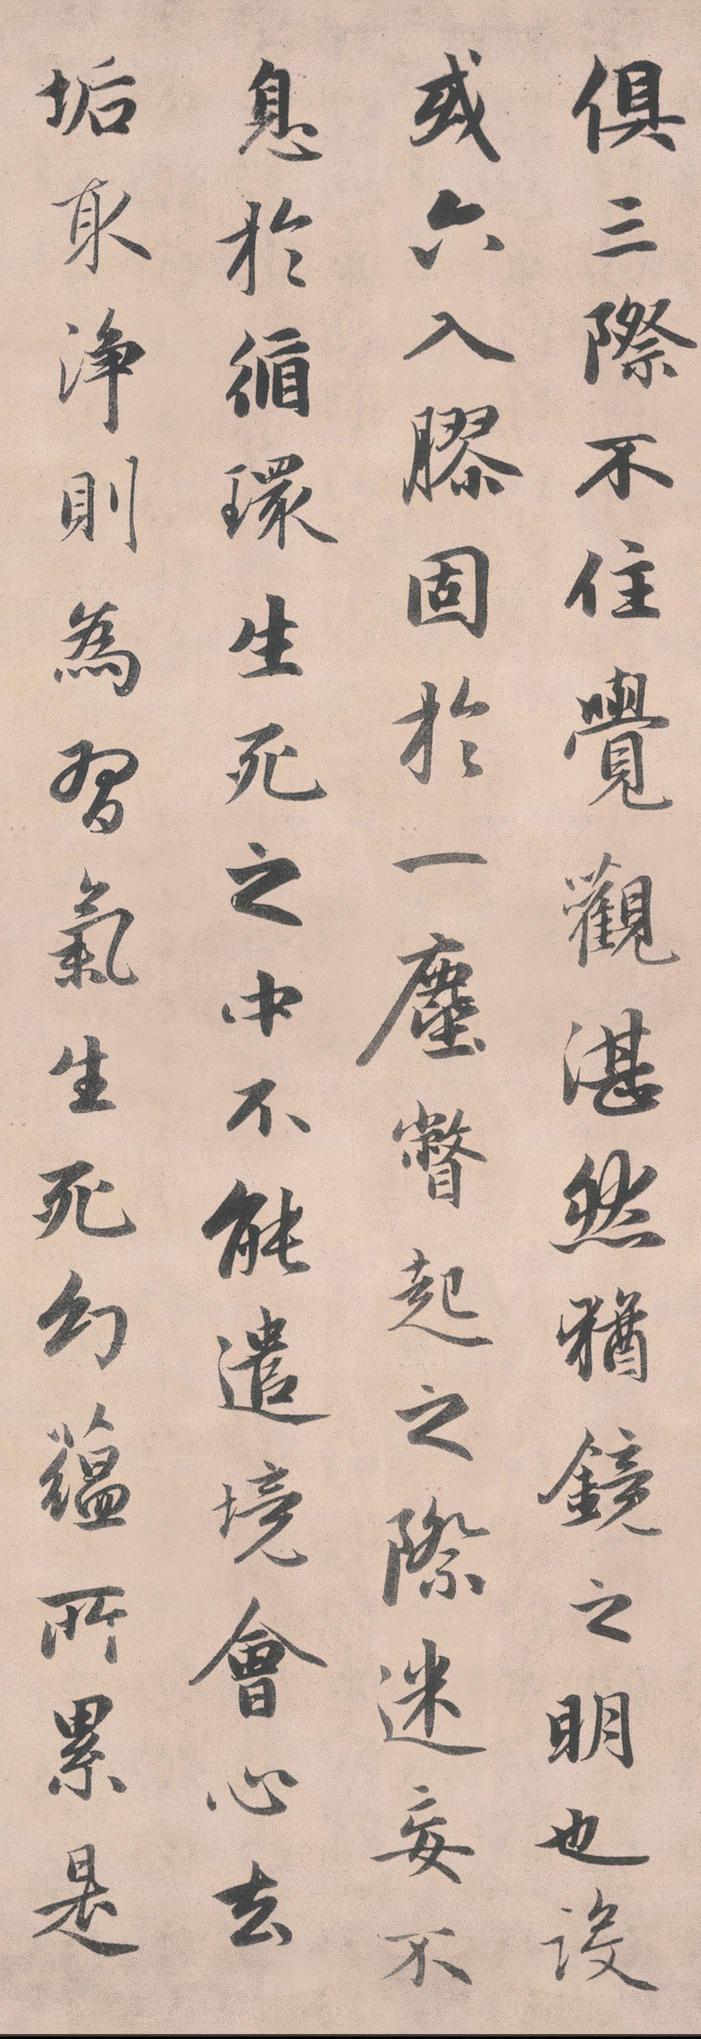 俱三際不住覺觀湛然猶鏡之明也設
或六入膠固於一塵瞥起之際迷妄不
息於循環生死之中不能遣境會心去
垢取淨則為習氣生死幻蘊所累是